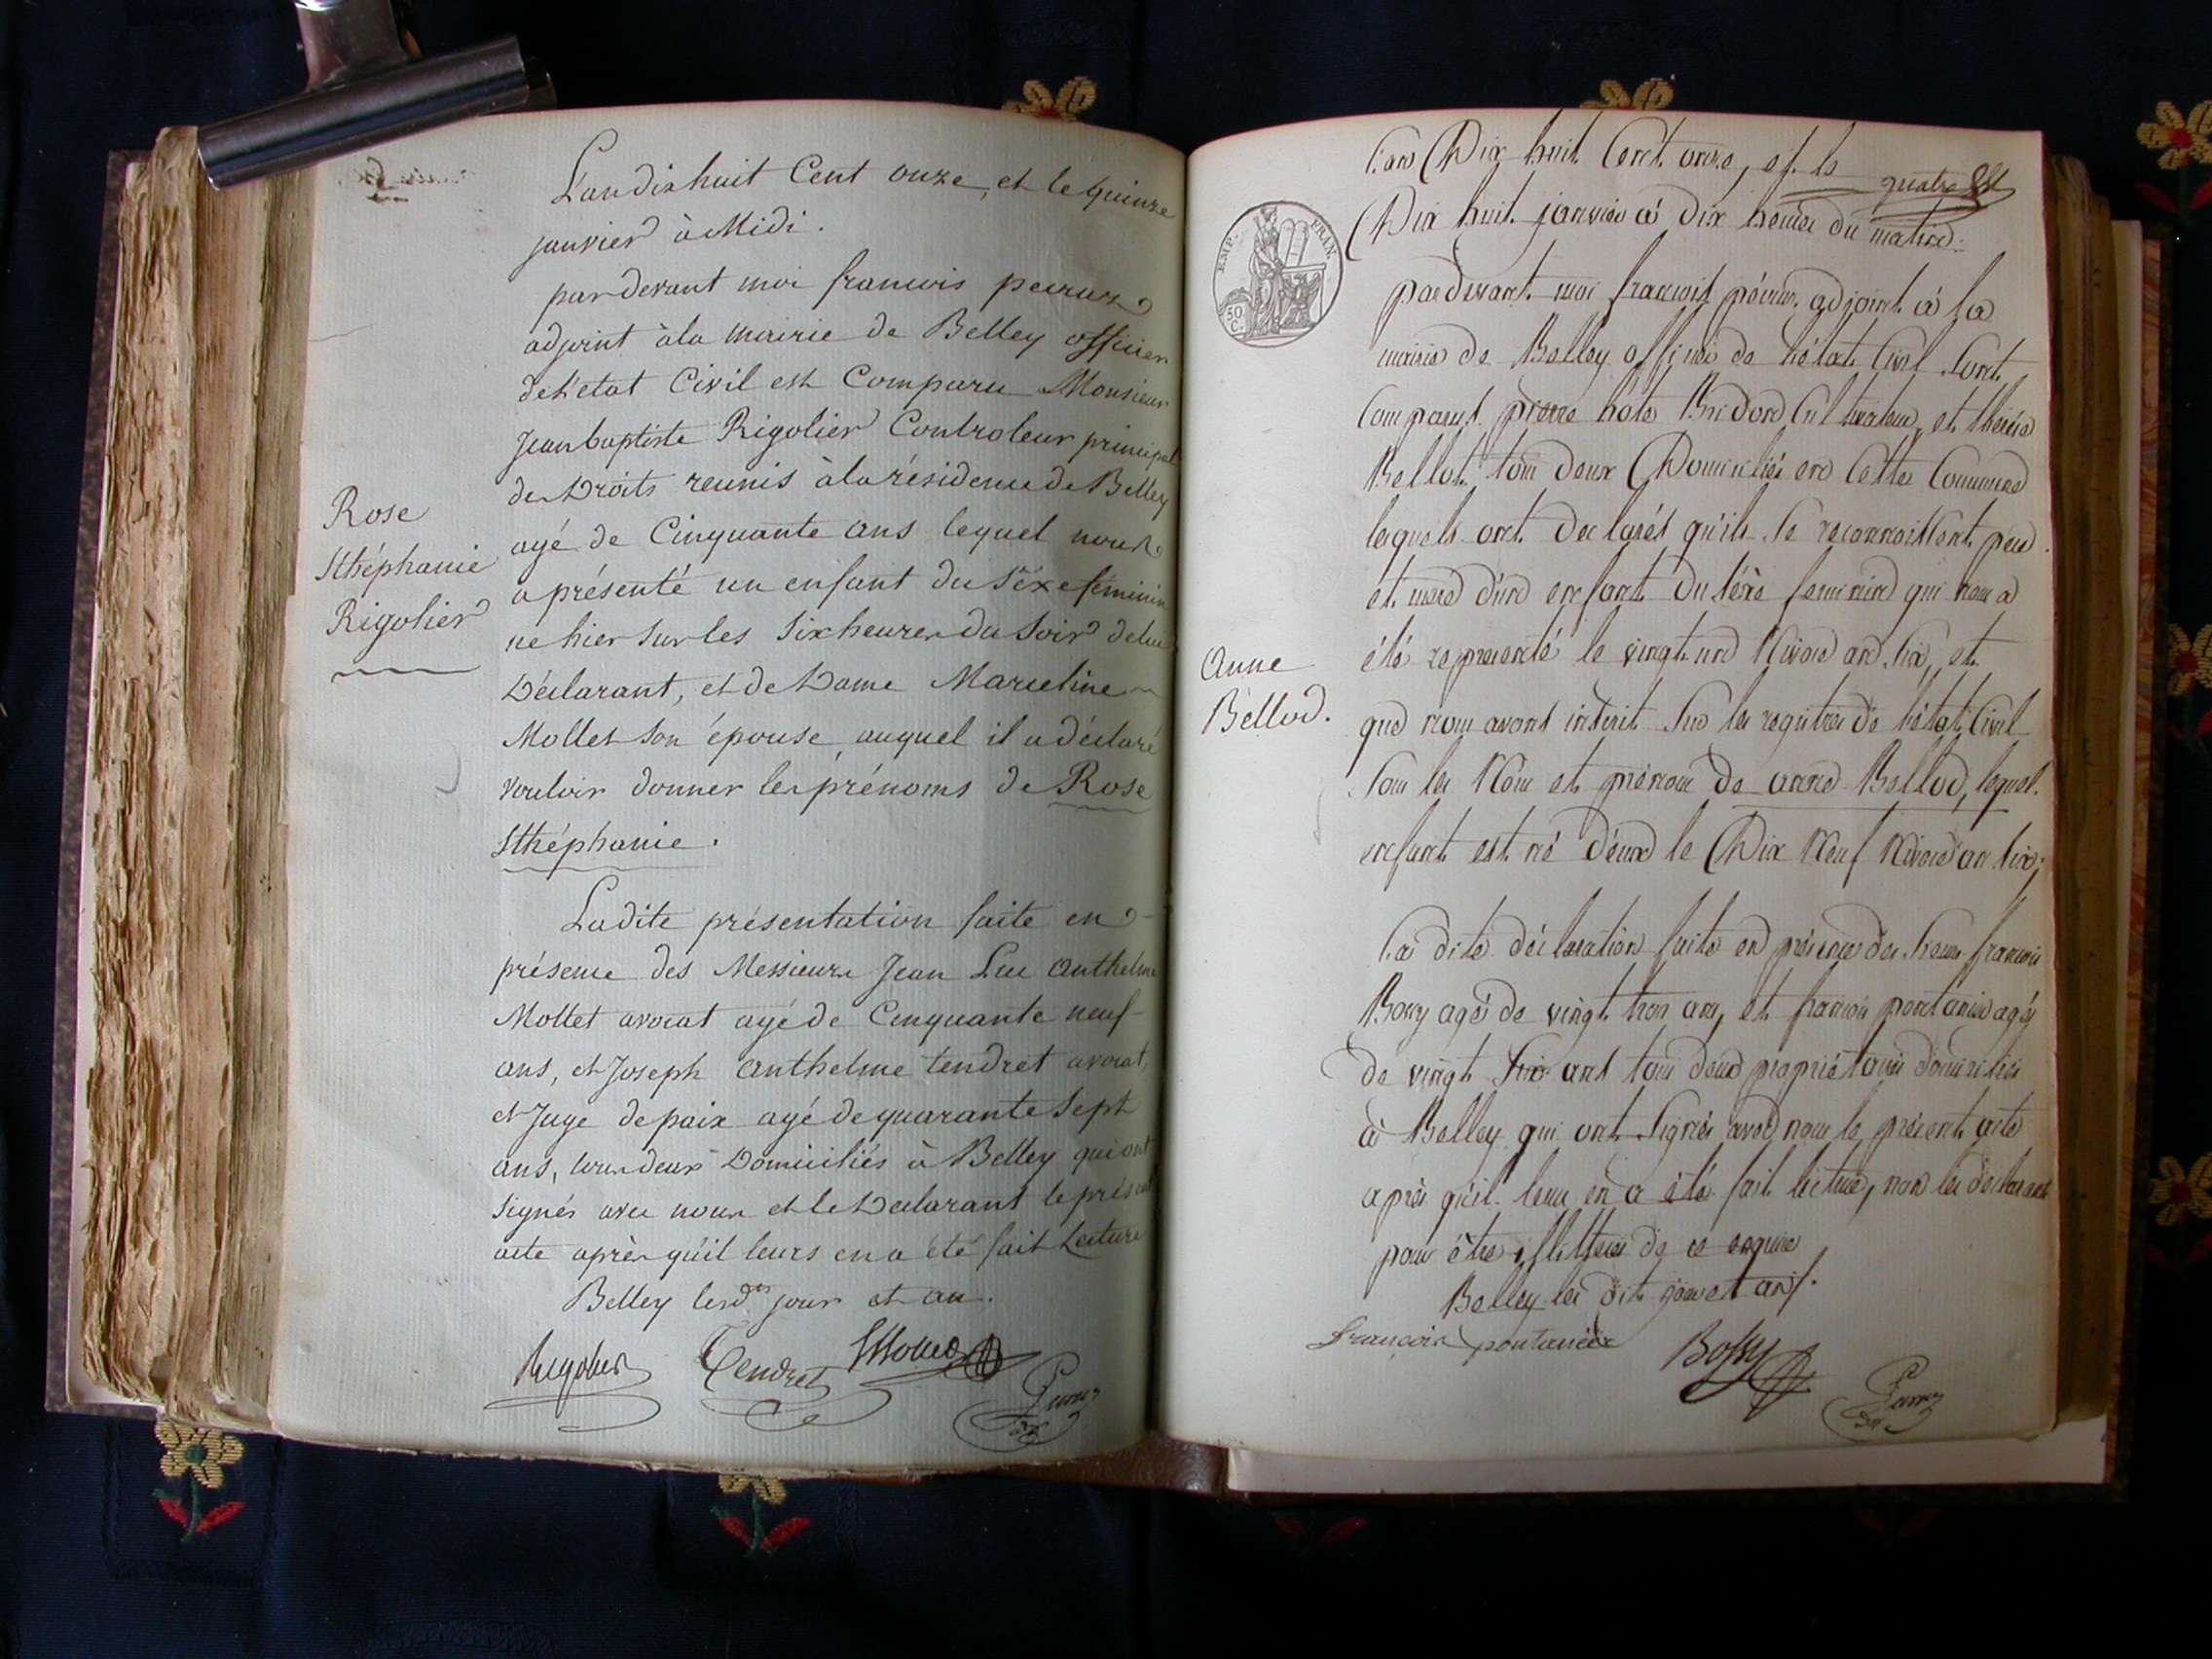 L'an dix huit Cent onze, et le quinze
janvier à Midi.
pardevant moi francois peiruz
adjoint à la mairie de Belley officier
de l'etat Civil est Comparu Monsieur
Jean baptiste Rigolier Controleur principal
des Droits reunis à la résidence de Belley
agé de Cinquante ans lequel nous
a présenté un enfant du séxe feminin
né hier sur les six heures du soir de lui
Déclarant, et de Dame Marceline
Mollet son épouse, auquel il a déclaré
vouloir donner les prénoms de Rose
Sthéphanie.
Rose
Sthéphanie
Rigolier
Ladite présentation faite en
présence des Messieurs Jean Luc Anthelme
Mollet avocat agé de Cinquante neuf
ans, et Joseph Anthelme tendret avocat,
et Juge de paix agé de quarante sept
ans, tous deux Domiciliés à Belley qui ont
signés avec nous et le Declarant le présent
acte après qu'il leurs en a été fait Lecture
Belley lesdts jour et an.
Rigolier Tendret Mollet
quatre
L'an Dix huit Cent onze, et le
Dix huit janvier à Dix heures du matin.
EMP. FRAN.
50 C.
pardevant moi françois péiruz adjoint à la
mairie de Belley officier de l'état Civil sont
Comparus pierre hôte Cultivateur, et therése
Bellot tous deux Domiciliés en Cette Commune
lesquels ont declarés qu'ils se reconnoissent pere
et mere d'un enfant du séxe feminin qui nous a
été représenté le vingt un Nivose an six, et
que nous avons inscrit sur les registres de l'état Civil
sous les Nom et prénom de anne Bellod, lequel
enfant est né d'eux le Dix Neuf Nivose an six;
Anne
Bellod.
La dite déclaration faite en présence des sieurs francois
Bossy agé de vingt trois ans, et francois pontanier agé
de vingt six ans tous deux propriétaires domiciliés
à Belley qui ont signés avec nous le présent acte
après qu'il leur en a été fait lecture, non les déclarants
pour être illitteres de ce enquis
Belley les dit jour et an.
François pontanier Bossy